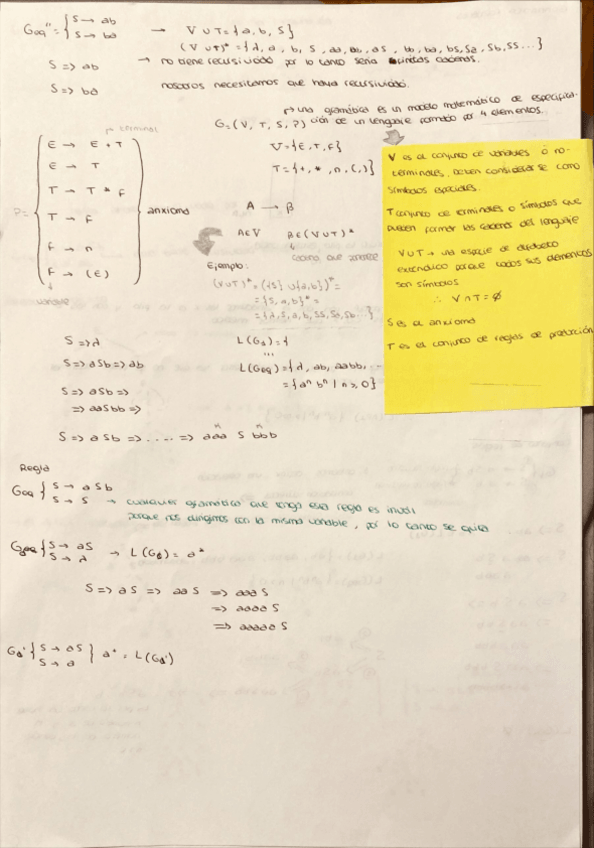 Geq'' = { S → ab
S → ba
→ V ∪ T = {a, b, S}
(V ∪ T)* = {λ, a, b, S, aa, ab, aS, bb, ba, bS, Sa, Sb, SS...}
S => ab → no tiene recursividad por lo tanto sería finitas cadenas.
S => ba nosotros necesitamos que haya recursividad.
↱ una gramática es un modelo matemático de especifica-
G = (V, T, S, P) ción de un lenguaje formado por 4 elementos.
V = {E, T, F}
T = {+, *, n, (, )}
↱ terminal
P = { E → E + T
E → T
T → T * F
T → F
F → n
F → (E) }
axioma
variable
A → β
A ∈ V β ∈ (V ∪ T)*
cadena que
Ejemplo:
(V ∪ T)* = ({S} ∪ {a, b})* =
= {S, a, b}* =
= {λ, S, a, b, SS, Sa, Sb...}
V es el conjunto de variables o no-
terminales, deben considerarse como
símbolos especiales.
T conjunto de terminales o símbolos que
pueden formar las cadenas del lenguaje
V ∪ T → una especie de alfabeto
extendido porque todos sus elementos
son símbolos
∴ V ∩ T = ∅
S es el axioma
T es el conjunto de reglas de producción
S => λ
S => aSb => ab
S => aSb =>
=> aaSbb =>
L(G1) = {
...
L(Geq) = {λ, ab, aabb, ...
= {aⁿ bⁿ | n ≥ 0}
S => aSb => ..... => aaa S bbb
Regla
Geq { S → aSb
S → S → cualquier gramática que tenga esta regla es inútil
porque nos dirigimos con la misma variable, por lo tanto se quita
{ S → aS
S → λ → L(G) = a*
S => aS => aaS => aaaS
=> aaaaS
=> aaaaaS
{ S → aS
S → a }